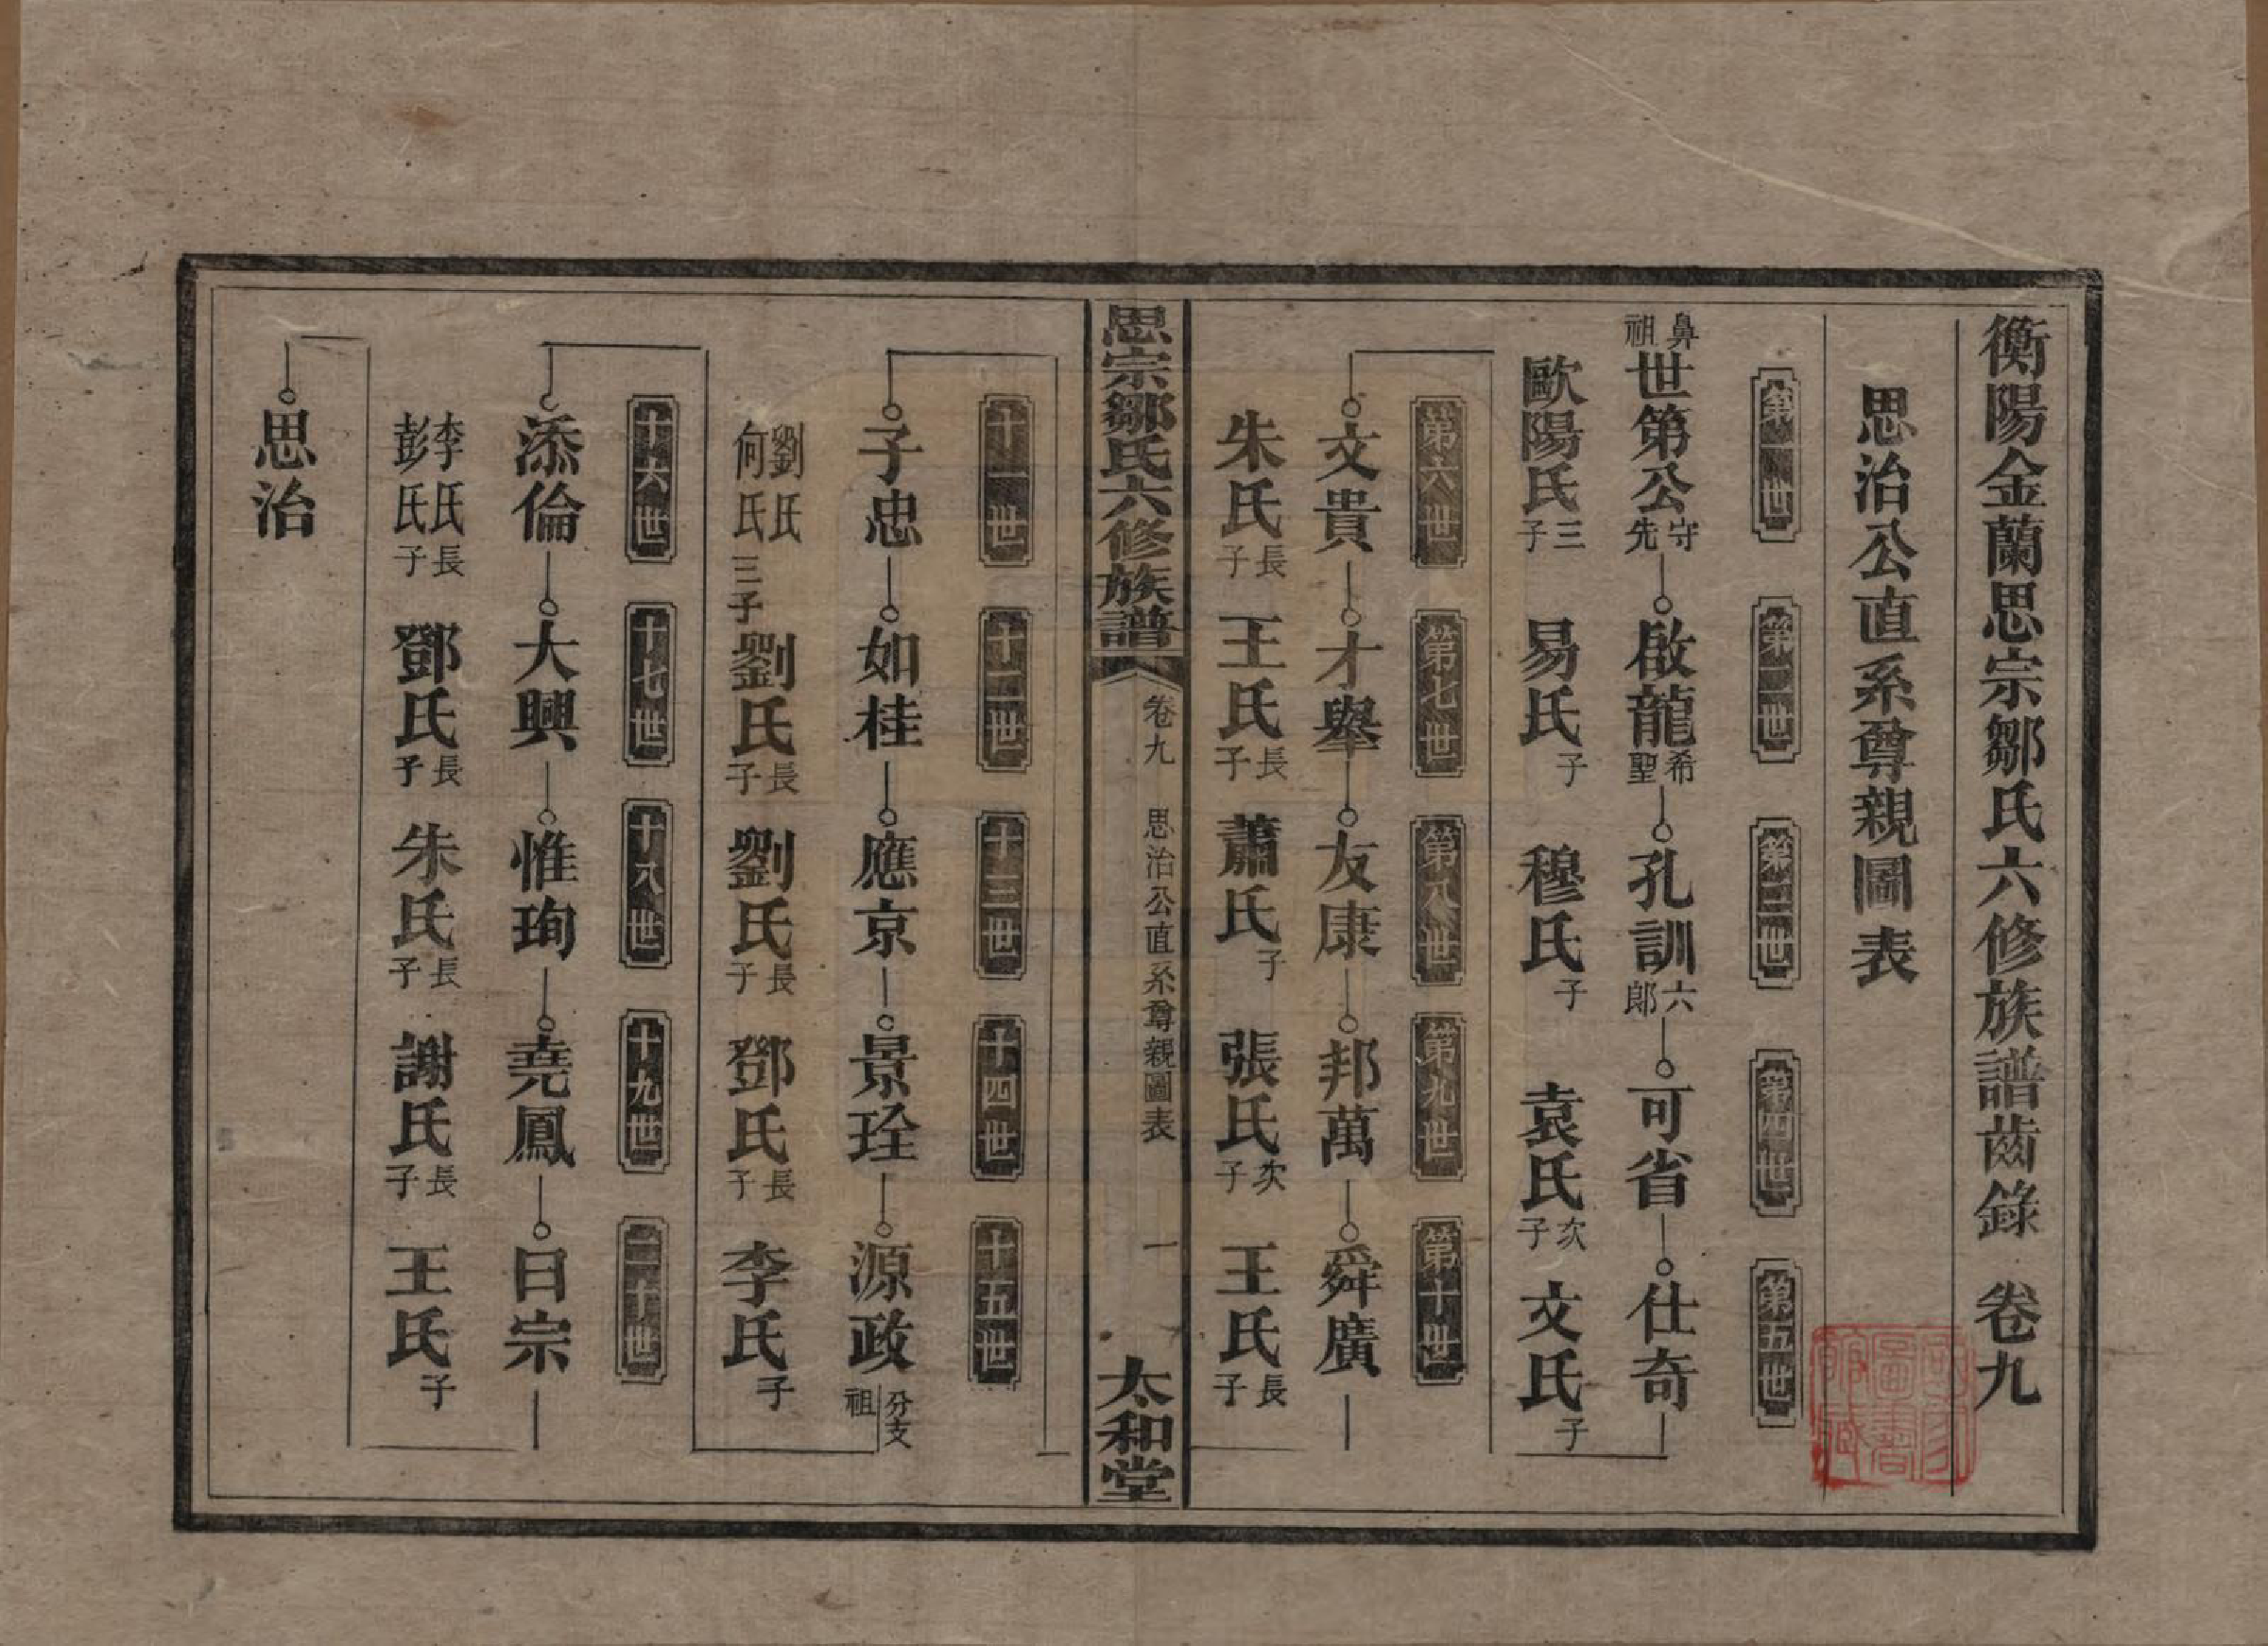 衡陽金蘭思宗鄒氏六修族譜齒錄 卷九
思治公直系尊親圖表
第一世 第二世 第三世 第四世 第五世
鼻祖世第公守先 啟龍希聖 孔訓六郎 可省 仕奇
歐陽氏三子 易氏子 穆氏子 袁氏次子 文氏子
第六世 第七世 第八世 第九世 第十世
文貴 才舉 友康 邦萬 舜廣
朱氏長子 王氏長子 蕭氏子 張氏次子 王氏長子
思宗鄒氏六修族譜 卷九 思治公直系尊親圖表 一 太和堂
十一世 十二世 十三世 十四世 十五世
子忠 如桂 應京 景琻 源政分支祖
劉氏何氏三子 劉氏長子 劉氏長子 鄧氏長子 李氏子
十六世 十七世 十八世 十九世 二十世
添倫 大興 惟珣 堯鳳 曰宗
李氏彭氏長子 鄧氏長子 朱氏長子 謝氏長子 王氏子
思治